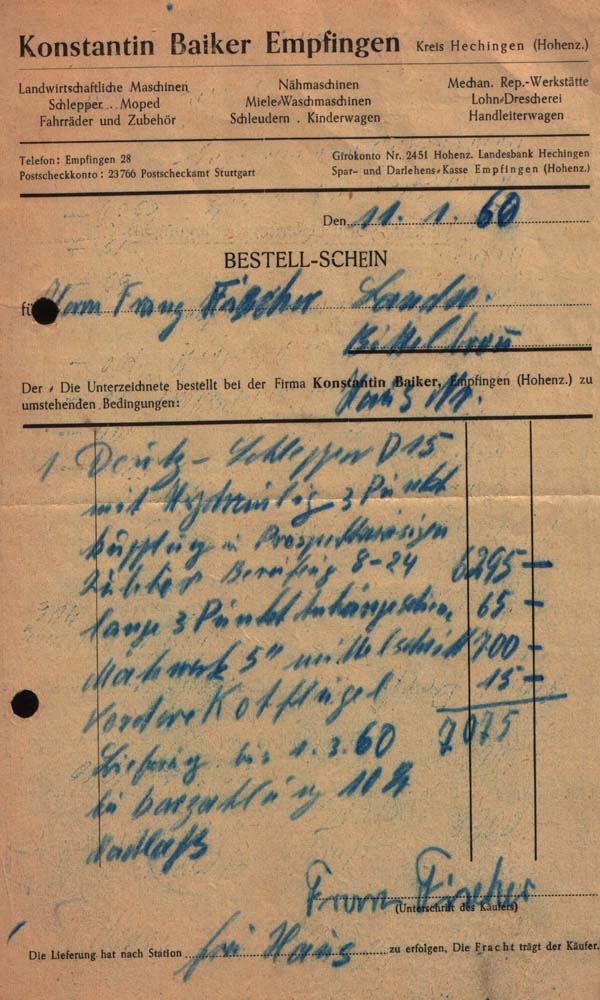 Konstantin Baiker Empfingen Kreis Hechingen (Hohenz.)
Landwirtschaftliche Maschinen Nähmaschinen Mechan. Rep.-Werkstätte
Schlepper . Moped Miele-Waschmaschinen Lohn-Drescherei
Fahrräder und Zubehör Schleudern . Kinderwagen Handleiterwagen
Telefon: Empfingen 28 Girokonto Nr. 2451 Hohenz. Landesbank Hechingen
Postscheckkonto: 23766 Postscheckamt Stuttgart Spar- und Darlehens-Kasse Empfingen (Hohenz.)
Den 11. 1. 60
BESTELL-SCHEIN
für Herrn Franz Fischer Landw.
Bittelbronn
Der - Die Unterzeichnete bestellt bei der Firma Konstantin Baiker, Empfingen (Hohenz.) zu
umstehenden Bedingungen: Haus Nr.
1 Deutz-Schlepper D 15
mit Hydraulig 3 Punkt
Kupplung in
Bereifung 8-24 6295 —
lange 3 Punkt 65 —
Mähwerk 5" mittelschnitt 700 —
Vordere Kotflügel 15 —
Lieferung bis 1. 3. 60 7075
bei barzahlung 10 %
Nachlaß
Franz Fischer
(Unterschrift des Käufers)
Die Lieferung hat nach Station frei Haus zu erfolgen, Die Fracht trägt der Käufer.